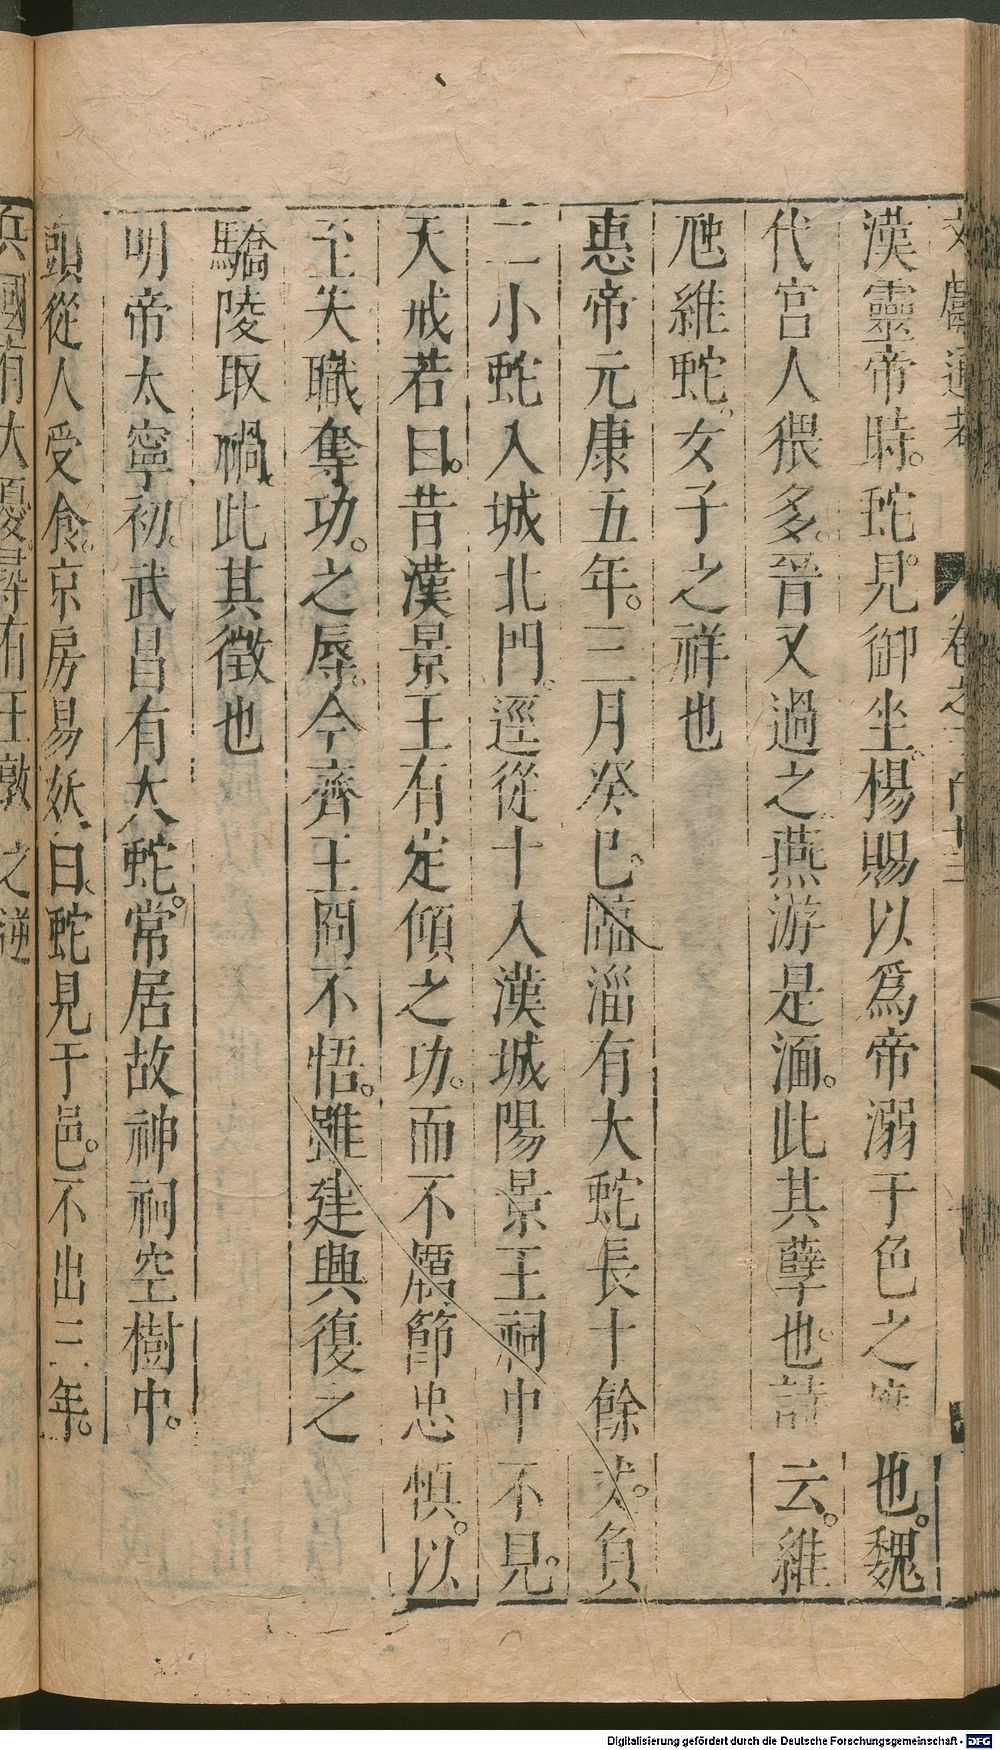 漢靈帝時。蛇見御坐。楊賜以爲帝溺于色之應也。魏
代宮人猥多。晉又過之燕游是湎。此其孽也。詩云。維
虺維蛇。女子之祥也
惠帝元康五年。三月癸巳。臨淄有大蛇長十餘丈。負
二小蛇入城北門。逕從十入漢城陽景王祠中不見。
天戒若曰。昔漢景王有定傾之功。而不厲節忠慎。以
至失職奪功。之辱。今齊王冏不悟。雖建興復之
驕陵取禍此其徵也
明帝太寧初。武昌有大蛇。常居故神祠空樹中。
頭從人受食。京房易妖曰。蛇見于邑。不出三年。
兵國有大憂。尋有王敦之逆
文獻通考 卷之三百十三
Digitalisierung gefördert durch die Deutsche Forschungsgemeinschaft - DFG